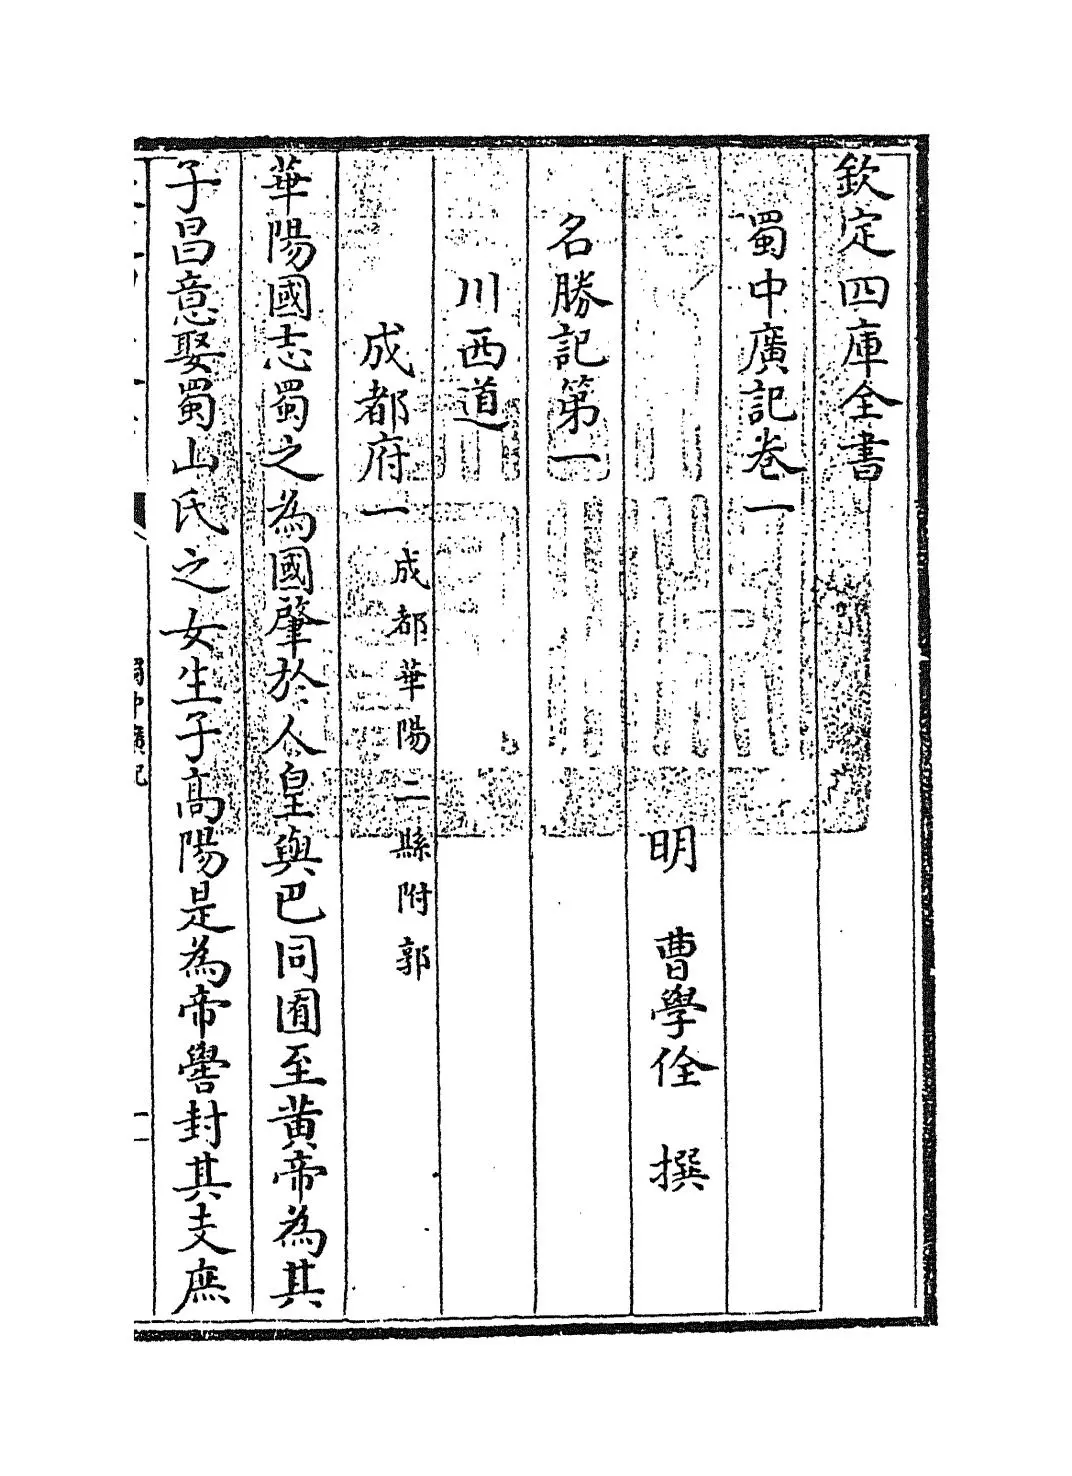 欽定四庫全書
蜀中廣記卷一
明 曹學佺 撰
名勝記第一
川西道
成都府一 成都華陽二縣附郭
華陽國志蜀之為國肇於人皇與巴同囿至黃帝為其
子昌意娶蜀山氏之女生子高陽是為帝嚳封其支庶